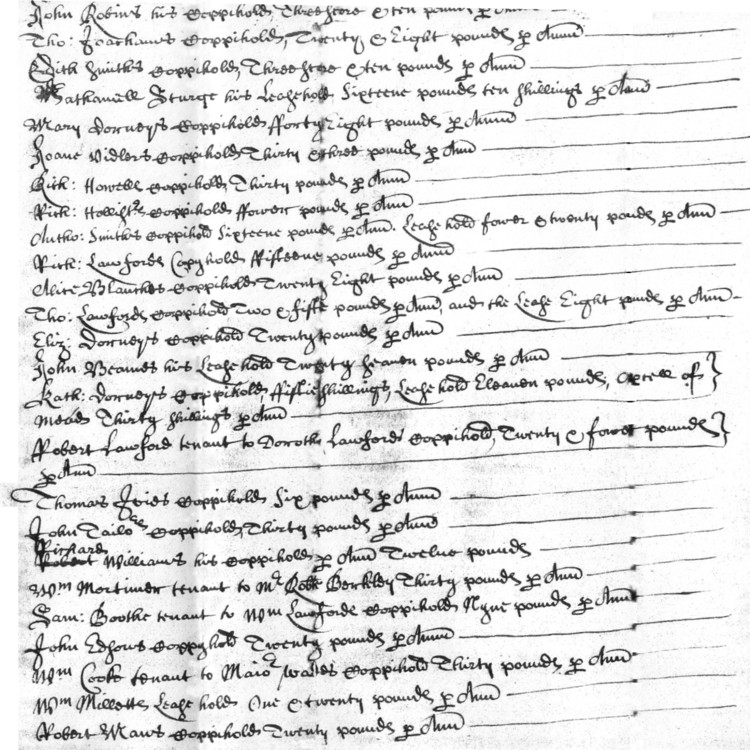 John Robins his Coppihold, Threescore & ten pounds p Ann
Tho: Joachams Coppihold, Twenty & Eight pounds p Annu
Edith Smiths Coppihold, Threescore & ten pounds p Annu
Nathaniell Sturge his Leasehold Sixteene pounds ten shillings p Annu
Mary Dorneys Coppihold fforty Eight pounds p Annu
Joane Vidlers Coppihold Thirty & three pounds p Annu
Rich: Howells Coppihold, Thirty pounds p Annu
Rich: Coppihold ffower pounds p Annu
Antho: Smiths Coppihold Sixteene pounds p Annu. Leasehold fower & twenty pounds p Annu
Rich: Lawfords Copyhold ffifteene pounds p Annu
Alice Blanches Coppihold Twenty Eight pounds p Annu
Tho: Lawfords Coppihold, Two & fiftie pounds p Annu, and the Lease Eight pounds p Annu
Eliz: Dorneys Coppihold Twenty pounds p Annu
John Beames his Leasehold Twenty seaven pounds p Annu
Kath: Dorneys Coppihold, ffiftie shillings, Leasehold Eleaven pounds, of
Mead Thirty shillings p Annu
Robert Lawford tenant to Dorothe Lawfords Coppihold, Twenty & fower pounds
p Annu
Thomas Coppihold Six pounds p Annu
John Tailors Coppihold, Thirty pounds p Annu
Richard
Robert Williams his Coppihold, p Annu Twelve pounds
Wm Mortimer tenant to Mr Berkley Thirty pounds p Annu
Sam: Boothe tenant to Wm Lawfords Coppihold Nyne pounds p Annu
John Coppyhold Twenty pounds p Annu
Wm Cooke tenant to Maior Wades Coppihold Thirty pounds, p Annu
Wm Milletts Leasehold One & twenty pounds p Annu
Robert Maies Coppihold Twenty pounds p Annu